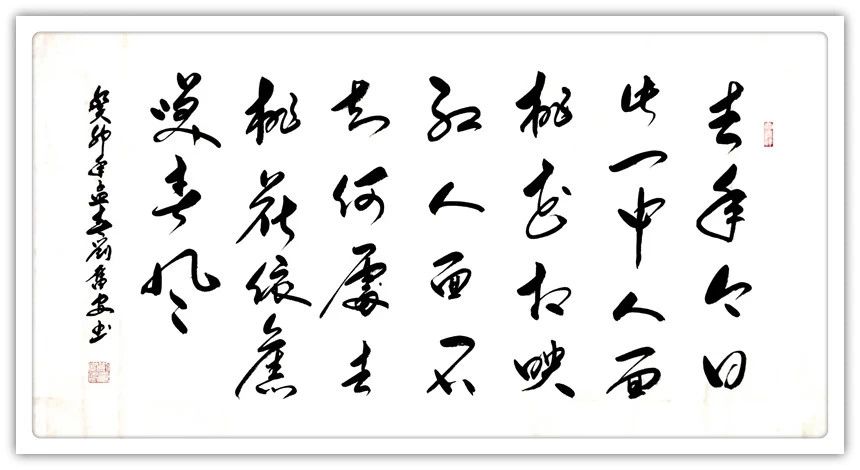 去年今日
此门中人面
桃花相映
红人面不
知何處去
桃花依舊
咲春风
癸卯年孟春劉安书